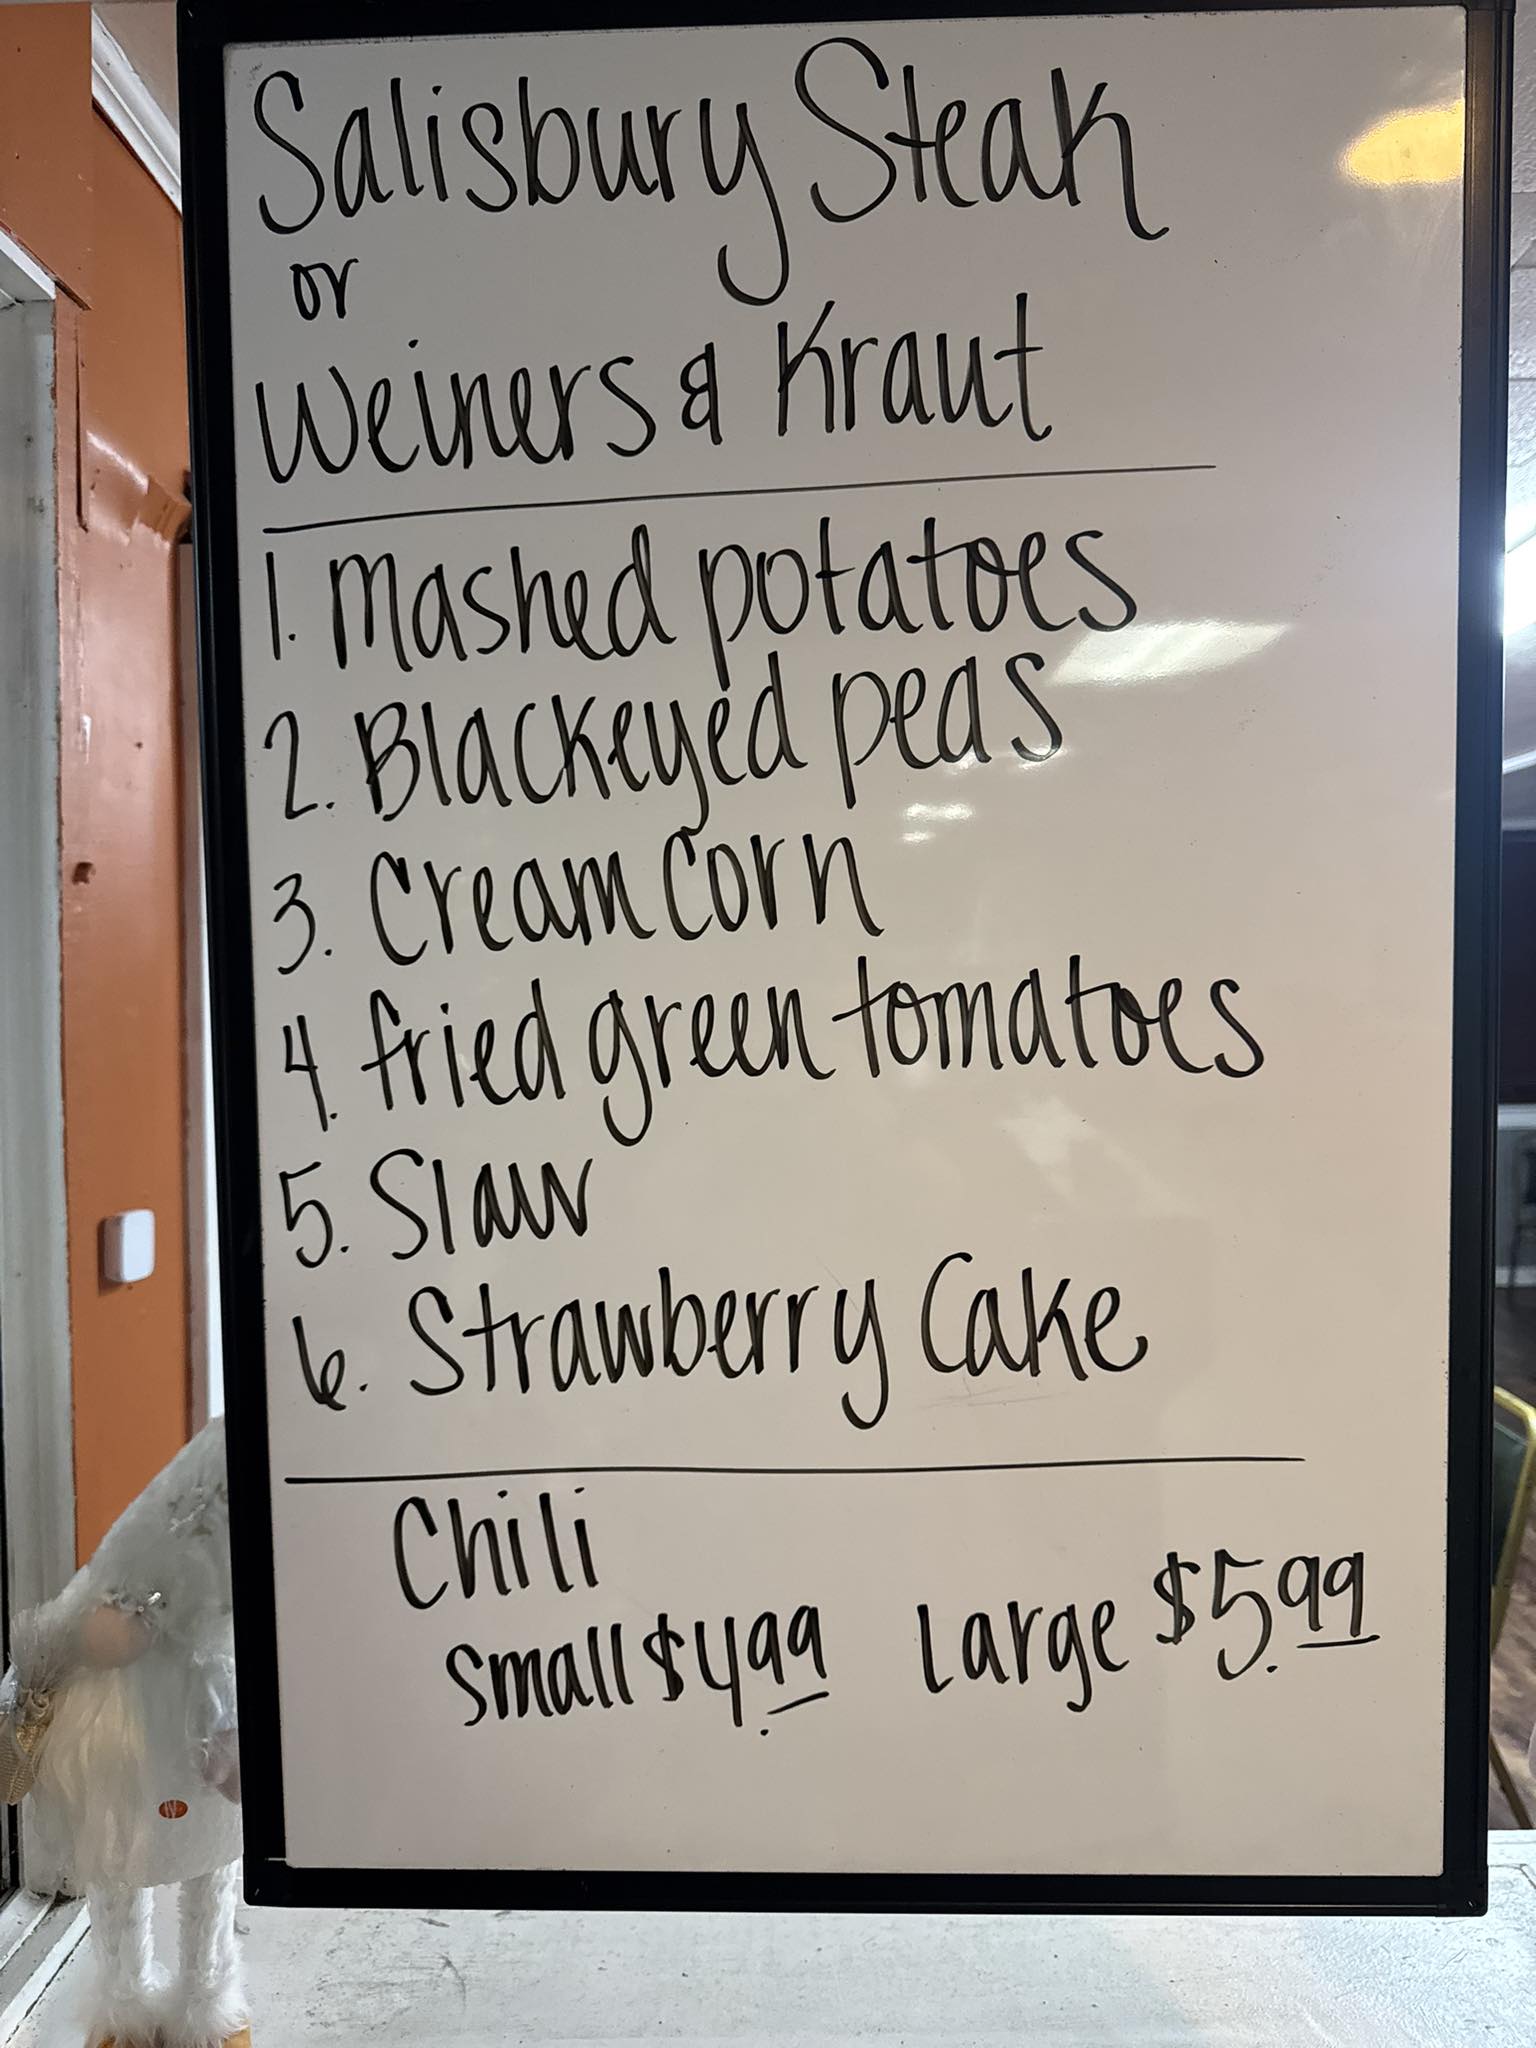 Salisbury Steak
or
Weiners & Kraut
1. Mashed potatoes
2. Blackeyed peas
3. Cream Corn
4. fried green tomatoes
5. Slaw
6. Strawberry Cake
Chili
Small $4.99 Large $5.99